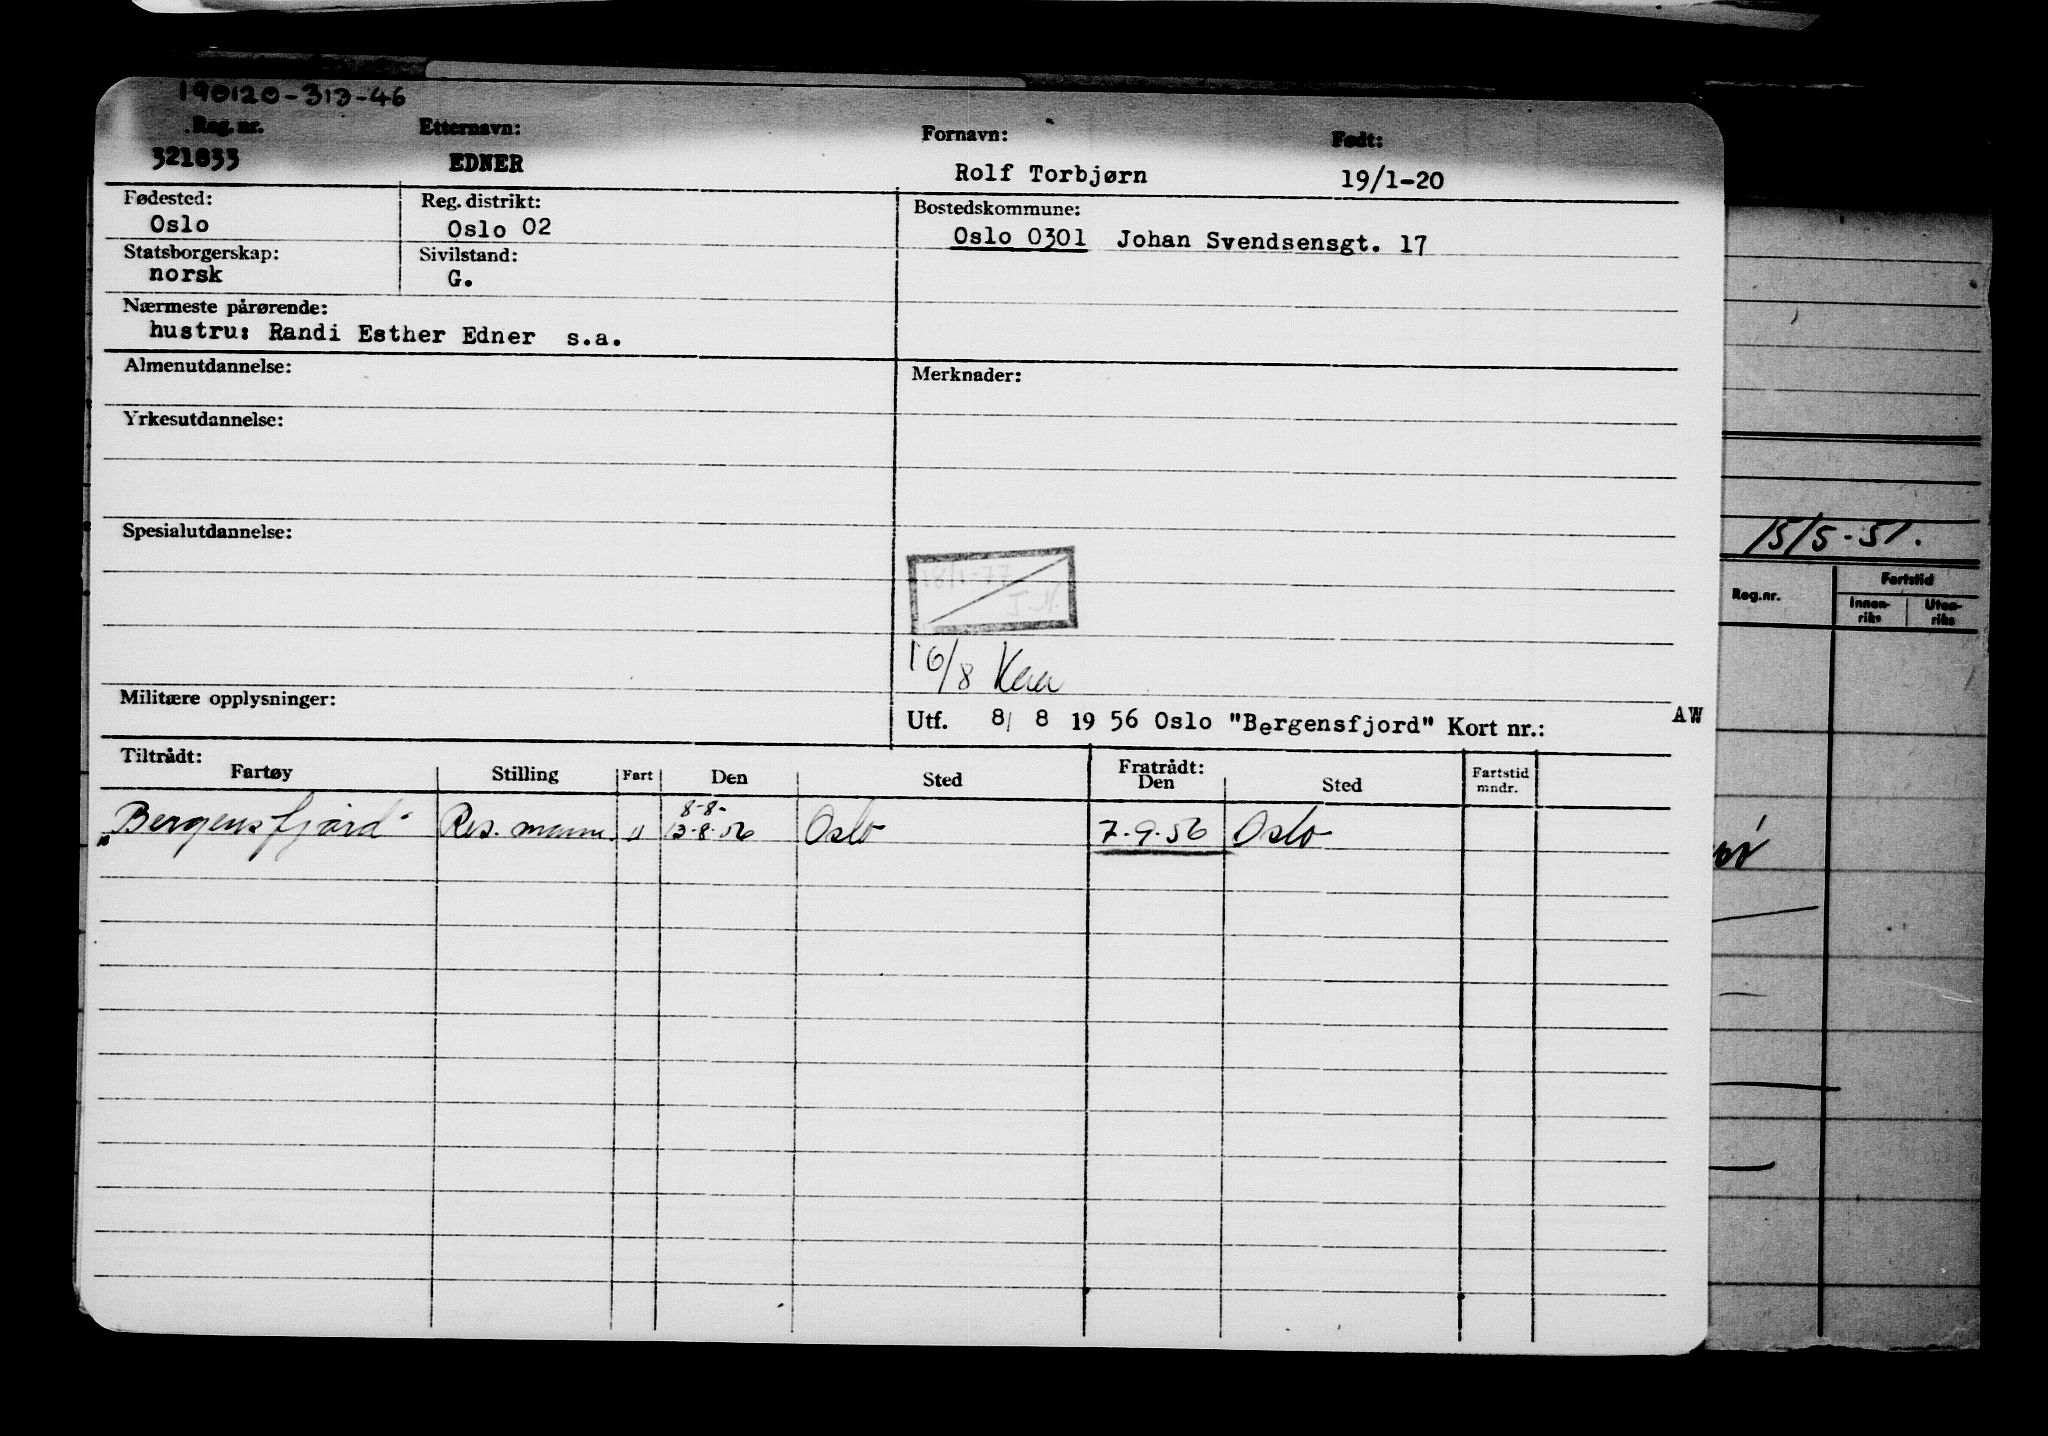 190120-313-46
Reg. nr. Etternavn: Fornavn: Født:
321833 EDNER Rolf Torbjørn 19/1-20
Fødested: Reg. distrikt: Bostedskommune:
Oslo Oslo 02 Oslo 0301 Johan Svendsensgt. 17
Statsborgerskap: Sivilstand:
norsk G.
Nærmeste pårørende:
hustru: Randi Esther Edner s.a.
Almenutdannelse: Merknader:
Yrkesutdannelse:
Spesialutdannelse:
18/1-77
J.N.
16/8
Militære opplysninger:
Utf. 8/ 8 19 56 Oslo "Bergensfjord" Kort nr.: AW
Tiltrådt: Fratrådt:
Fartøy Stilling Fart Den Sted Den Sted Fartstid mndr.
8-8-
"Bergensfjord" Res. mann. U 13-8-56 Oslo 7-9-56 Oslo
15/5-51.
Reg.nr. Fartstid
Innen-riks Uten-riks